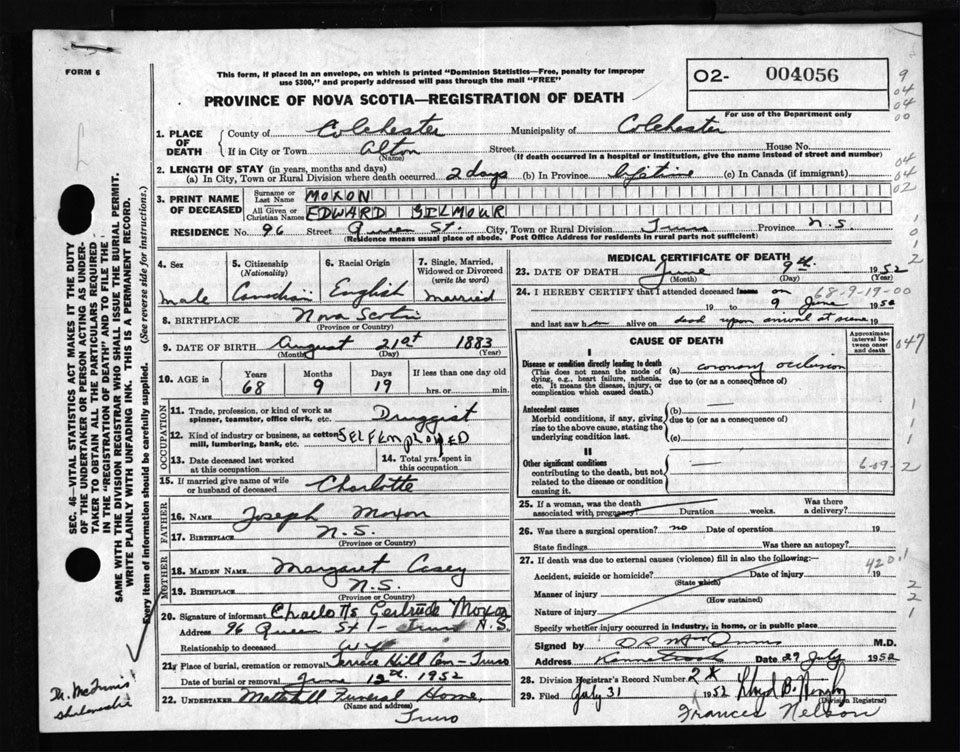 FORM 6
This form, if placed in an envelope, on which is printed "Dominion Statistics—Free, penalty for improper use $300," and properly addressed will pass through the mail "FREE"
O2- 004056
PROVINCE OF NOVA SCOTIA—REGISTRATION OF DEATH
For use of the Department only
9
04
04
00
04
04
02
1. PLACE OF DEATH
County of Colchester Municipality of Colchester
If in City or Town Alton Street House No.
(Name) (If death occurred in a hospital or institution, give the name instead of street and number)
2. LENGTH OF STAY (in years, months and days)
(a) In City, Town or Rural Division where death occurred 2 days (b) In Province lifetime (c) In Canada (if immigrant)
3. PRINT NAME OF DECEASED
Surname or Last Name MOXON
All Given or Christian Names EDWARD GILMOUR
RESIDENCE No. 96 Street Queen St. City, Town or Rural Division Truro Province N.S.
(Residence means usual place of abode. Post Office Address for residents in rural parts not sufficient)
1
0
1
2
4. Sex male
5. Citizenship (Nationality) Canadian
6. Racial Origin English
7. Single, Married, Widowed or Divorced (write the word) married
8. BIRTHPLACE Nova Scotia
(Province or Country)
9. DATE OF BIRTH August 21st 1883
(Month) (Day) (Year)
10. AGE in Years 68 Months 9 Days 19 If less than one day old hrs. or min.
OCCUPATION
11. Trade, profession, or kind of work as spinner, teamster, office clerk, etc. Druggist
12. Kind of industry or business, as cotton mill, lumbering, bank, etc. SELF EMPLOYED
13. Date deceased last worked at this occupation
14. Total yrs. spent in this occupation
15. If married give name of wife or husband of deceased Charlotte
FATHER
16. NAME Joseph Moxon
17. BIRTHPLACE N.S.
(Province or Country)
MOTHER
18. MAIDEN NAME Margaret Casey
19. BIRTHPLACE N.S.
(Province or Country)
20. Signature of informant Charlotte Gertrude Moxon
Address 96 Queen St - Truro N.S.
Relationship to deceased wife
21. Place of burial, cremation or removal Terrace Hill Cem - Truro
Date of burial or removal June 12th 1952
22. UNDERTAKER Funeral Home,
Truro
MEDICAL CERTIFICATE OF DEATH
23. DATE OF DEATH June 9th 1952
(Month) (Day) (Year)
24. I HEREBY CERTIFY that I attended deceased from on 68-9-19-00
19 to 9 June 1952
and last saw h alive on dead upon arrival at scene 19
CAUSE OF DEATH
Approximate interval between onset and death
047
I
Disease or condition directly leading to death
(This does not mean the mode of dying, e.g., heart failure, asthenia, etc. It means the disease, injury, or complication which caused death.)
(a) coronary occlusion
due to (or as a consequence of)
Antecedent causes
Morbid conditions, if any, giving rise to the above cause, stating the underlying condition last.
(b)
due to (or as a consequence of)
(c)
1
1
II
Other significant conditions
contributing to the death, but not related to the disease or condition causing it.
6-09-2
25. If a woman, was the death associated with pregnancy? Duration weeks. Was there a delivery?
26. Was there a surgical operation? no Date of operation 19
State findings Was there an autopsy?
27. If death was due to external causes (violence) fill in also the following:
420 1
Accident, suicide or homicide? Date of injury 19
(State which)
Manner of injury
(How sustained)
Nature of injury
2
2
1
Specify whether injury occurred in industry, in home, or in public place
Signed by M.D.
Address Date 29 July 1952
28. Division Registrar's Record Number 2
29. Filed July 31 1952 Lloyd B.
(Division Registrar)
Frances Nelson
SEC. 46—VITAL STATISTICS ACT MAKES IT THE DUTY OF THE UNDERTAKER OR PERSON ACTING AS UNDERTAKER TO OBTAIN ALL THE PARTICULARS REQUIRED IN THE "REGISTRATION OF DEATH" AND TO FILE THE SAME WITH THE DIVISION REGISTRAR WHO SHALL ISSUE THE BURIAL PERMIT.
WRITE PLAINLY WITH UNFADING INK. THIS IS A PERMANENT RECORD.
Every item of information should be carefully supplied. (See reverse side for instructions.)
Dr.